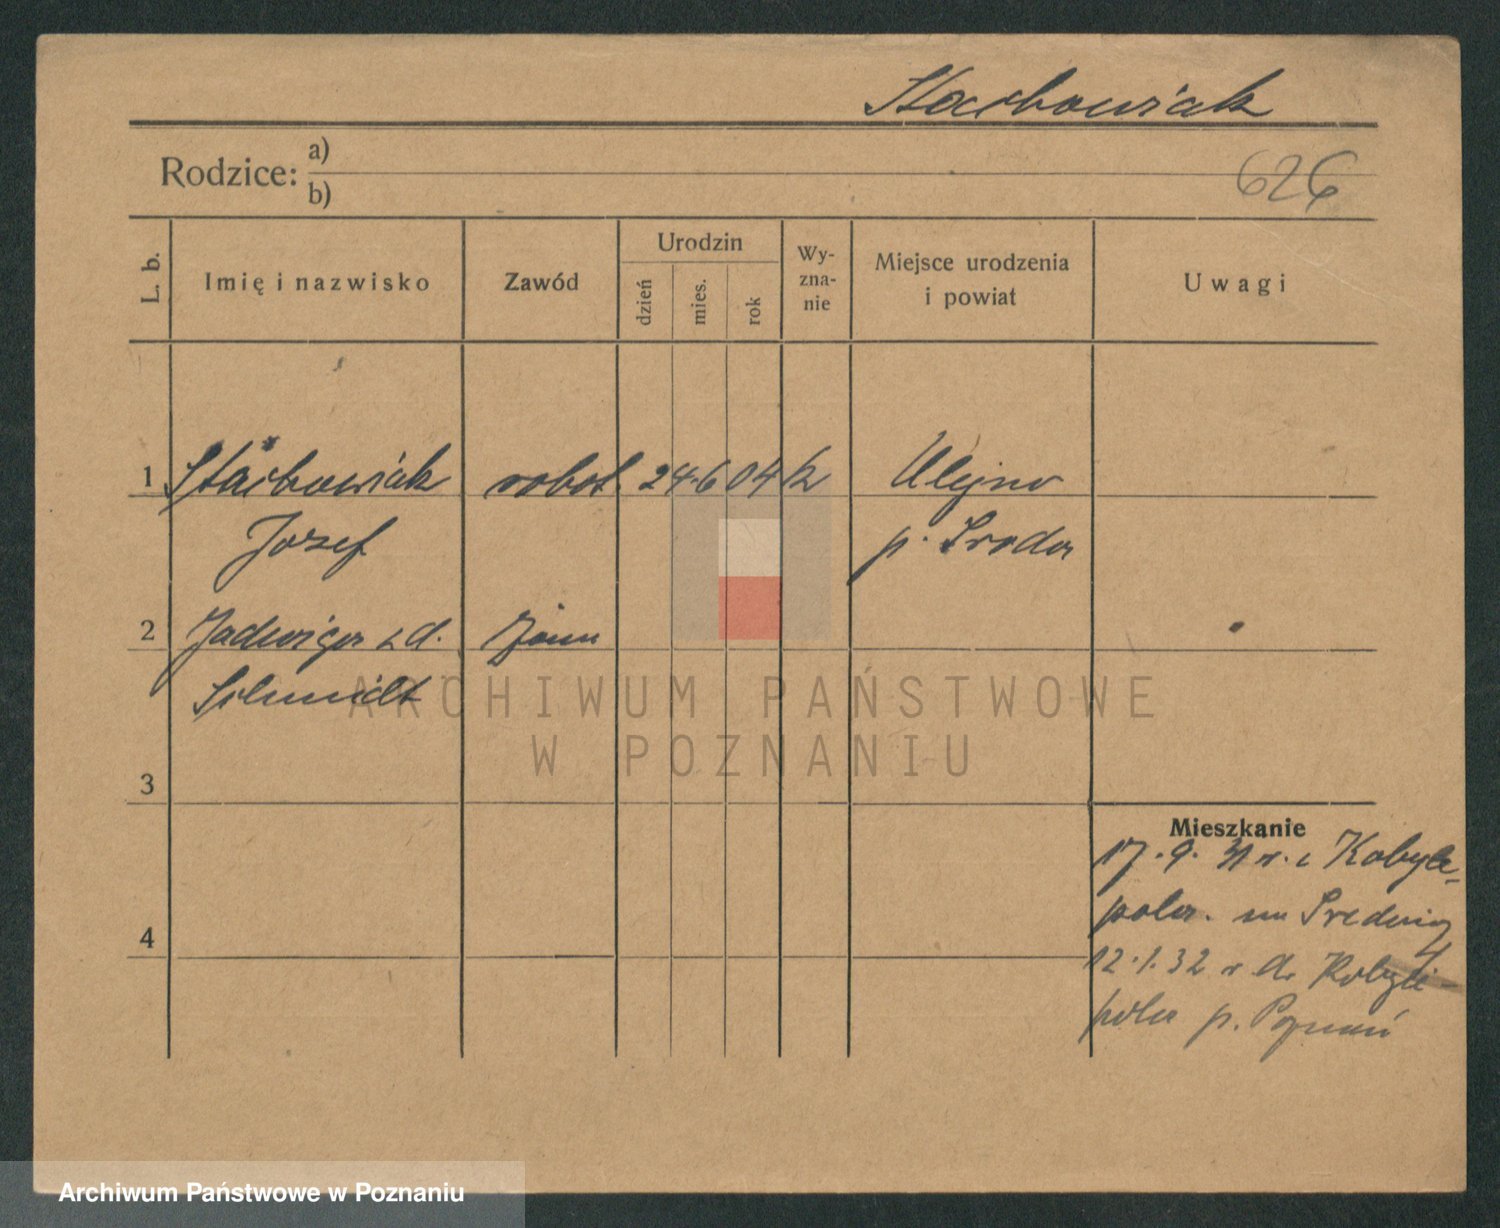 Stachowiak
Rodzice: a)
b)
626
L. b.
Imię i nazwisko
Zawód
Urodzin
dzień
mies.
rok
Wy-
zna-
nie
Miejsce urodzenia
i powiat
Uwagi
1 Stachowiak robot. 24.6 04 k Ulejno
Jozef p. Sroda
2 Jadwiga z d. żona
Schmidt
ARCHIWUM PAŃSTWOWE
W POZNANIU
3
4
Mieszkanie
17.9.31 r. z Kobyle-
pola.
12.1.32 r. do Kobyle-
pola p. Poznań
Archiwum Państwowe w Poznaniu